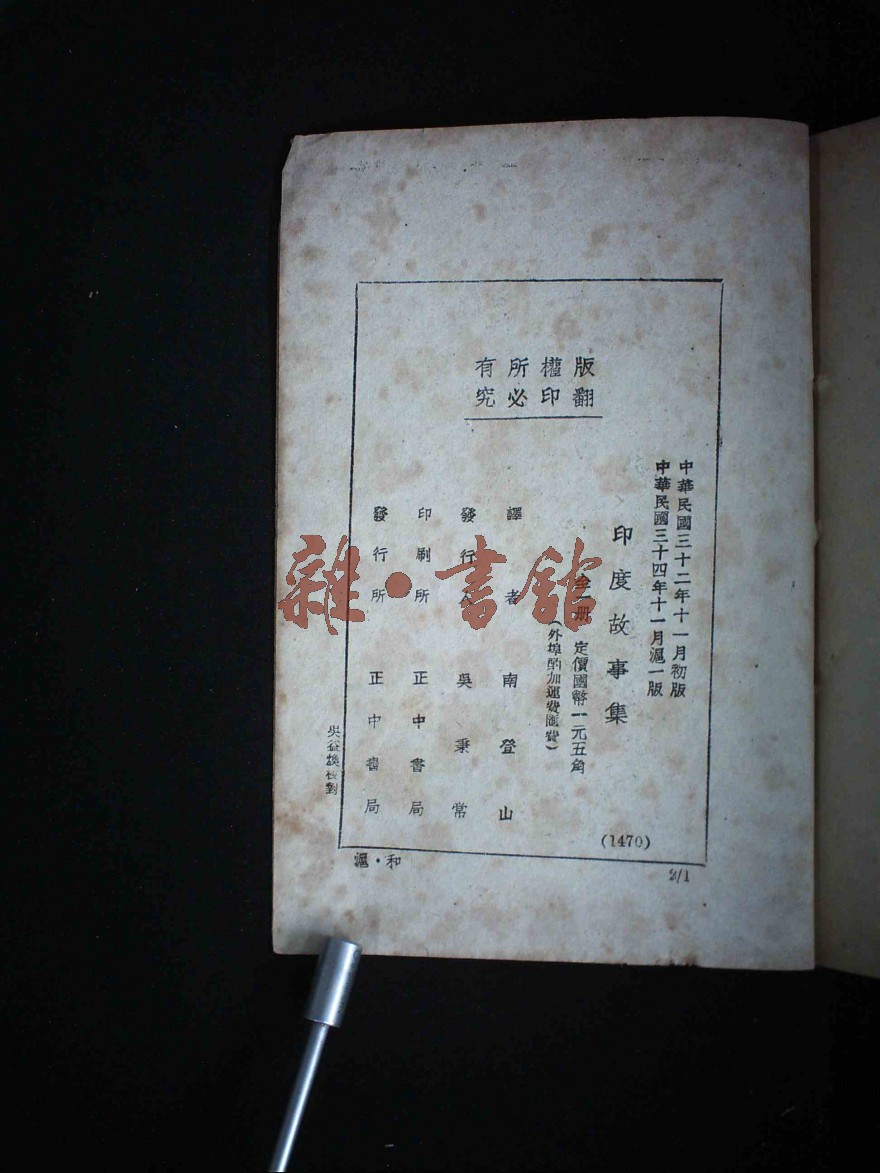 中華民國三十二年十一月初版
中華民國三十四年十一月滬一版
版權所有
翻印必究
印度故事集
全一冊 定價國幣一元五角
(外埠酌加運費匯費)
譯者 南登山
發行人 吳秉常
印刷所 正中書局
發行所 正中書局
(1470)
校對
滬・和
2/1
雜・書舘